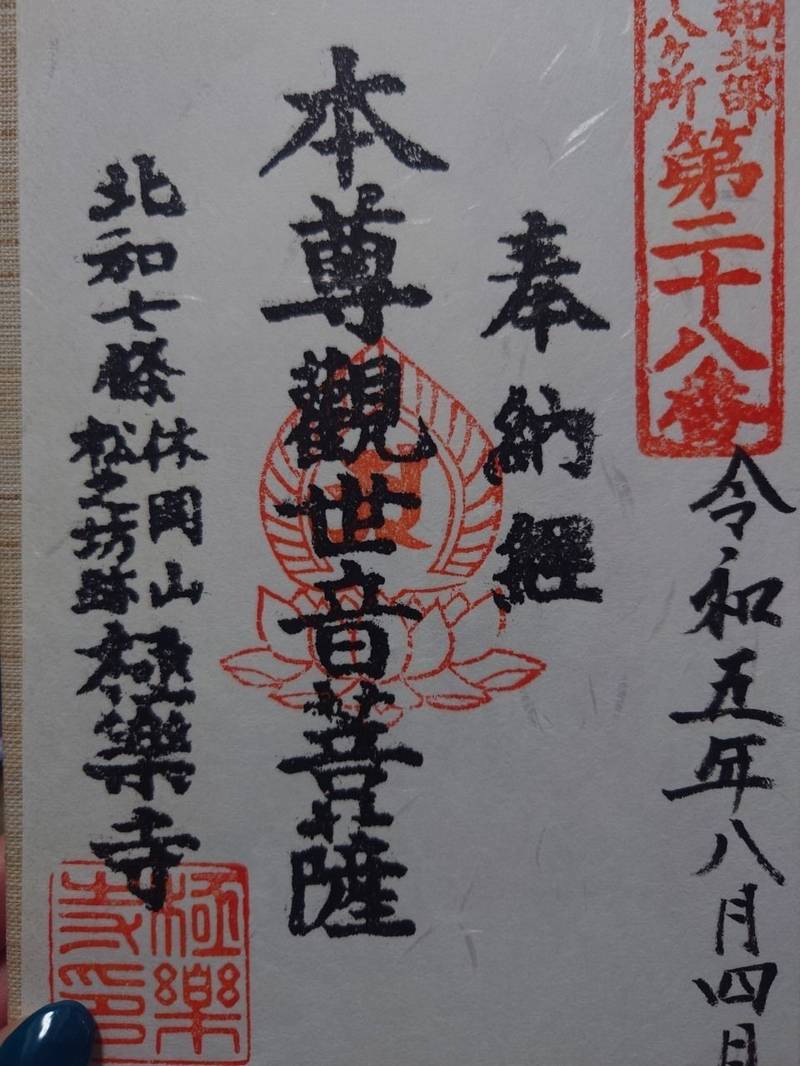 和北部
八ケ所
第二十八番
令和五年八月四日
奉納経
本尊觀世音菩薩
北和七條
休岡山
松之坊跡
極樂寺
極樂
寺印